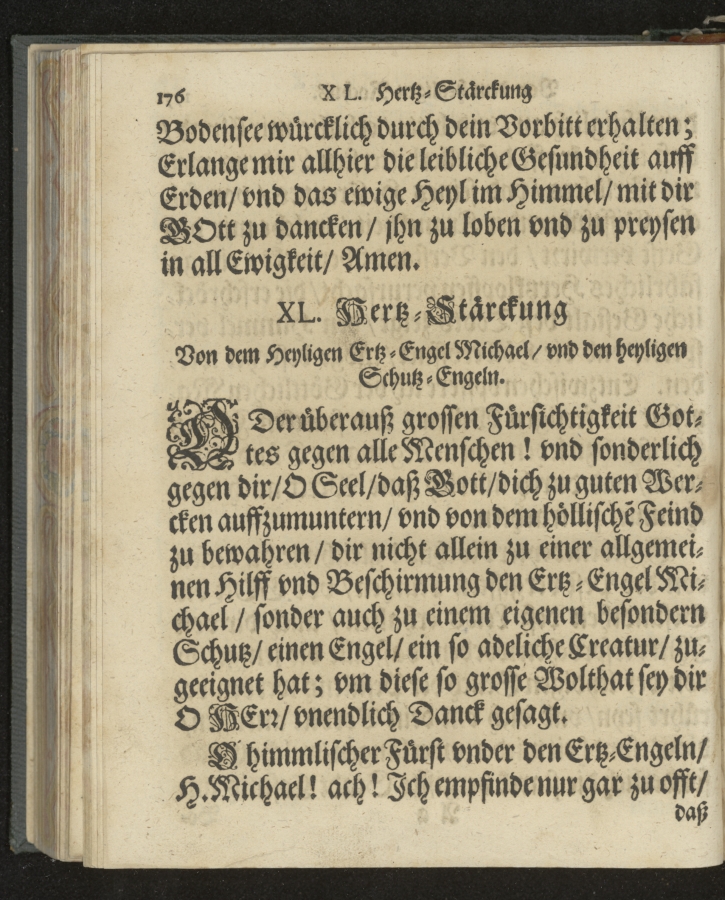 176 XL. Hertz-Stärckung
Bodensee würcklich durch dein Vorbitt erhalten;
Erlange mir allhier die leibliche Gesundheit auff
Erden/ vnd das ewige Heyl im Himmel/ mit dir
GOtt zu dancken/ jhn zu loben vnd zu preysen
in all Ewigkeit/ Amen.
XL. Hertz-Stärckung
Von dem Heyligen Ertz-Engel Michael/ vnd den heyligen
Schutz-Engeln.
O Der überauß grossen Fürsichtigkeit Got-
tes gegen alle Menschen! vnd sonderlich
gegen dir/ O Seel/ daß Gott/ dich zu guten Wer-
cken auffzumuntern/ vnd von dem höllischẽ Feind
zu bewahren/ dir nicht allein zu einer allgemei-
nen Hilff vnd Beschirmung den Ertz-Engel Mi-
chael/ sonder auch zu einem eigenen besondern
Schutz/ einen Engel/ ein so adeliche Creatur/ zu-
geeignet hat; vm diese so grosse Wolthat sey dir
O HErr/ vnendlich Danck gesagt.
O himmlischer Fürst vnder den Ertz-Engeln/
H. Michael! ach! Ich empfinde nur gar zu offt/
daß